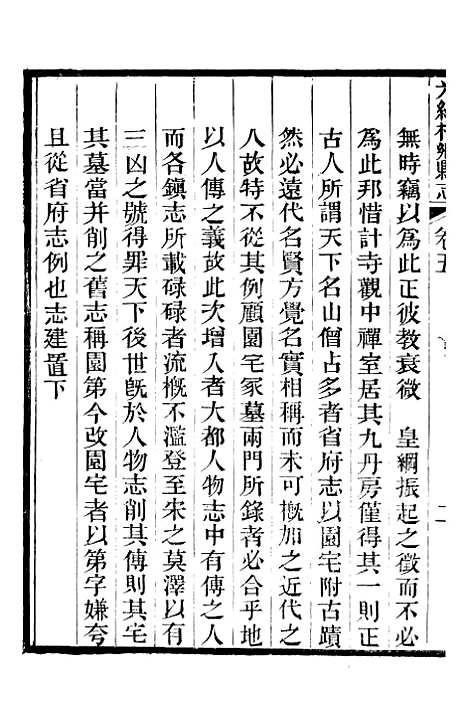 光緒桐鄉縣志
卷五
二
無時竊以爲此正彼教衰微　皇綱振起之徵而不必
爲此邦惜計寺觀中禪室居其九丹房僅得其一則正
古人所謂天下名山僧占多者省府志以園宅附古蹟
然必遠代名賢方覺名實相稱而未可槪加之近代之
人故特不從其例顧園宅冢墓兩門所錄者必合乎地
以人傳之義故此次增入者大都人物志中有傳之人
而各鎮志所載碌碌者流槪不濫登至宋之莫澤以有
三凶之號得罪天下後世旣於人物志削其傳則其宅
其墓當并削之舊志稱園第今改園宅者以第字嫌夸
且從省府志例也志建置下